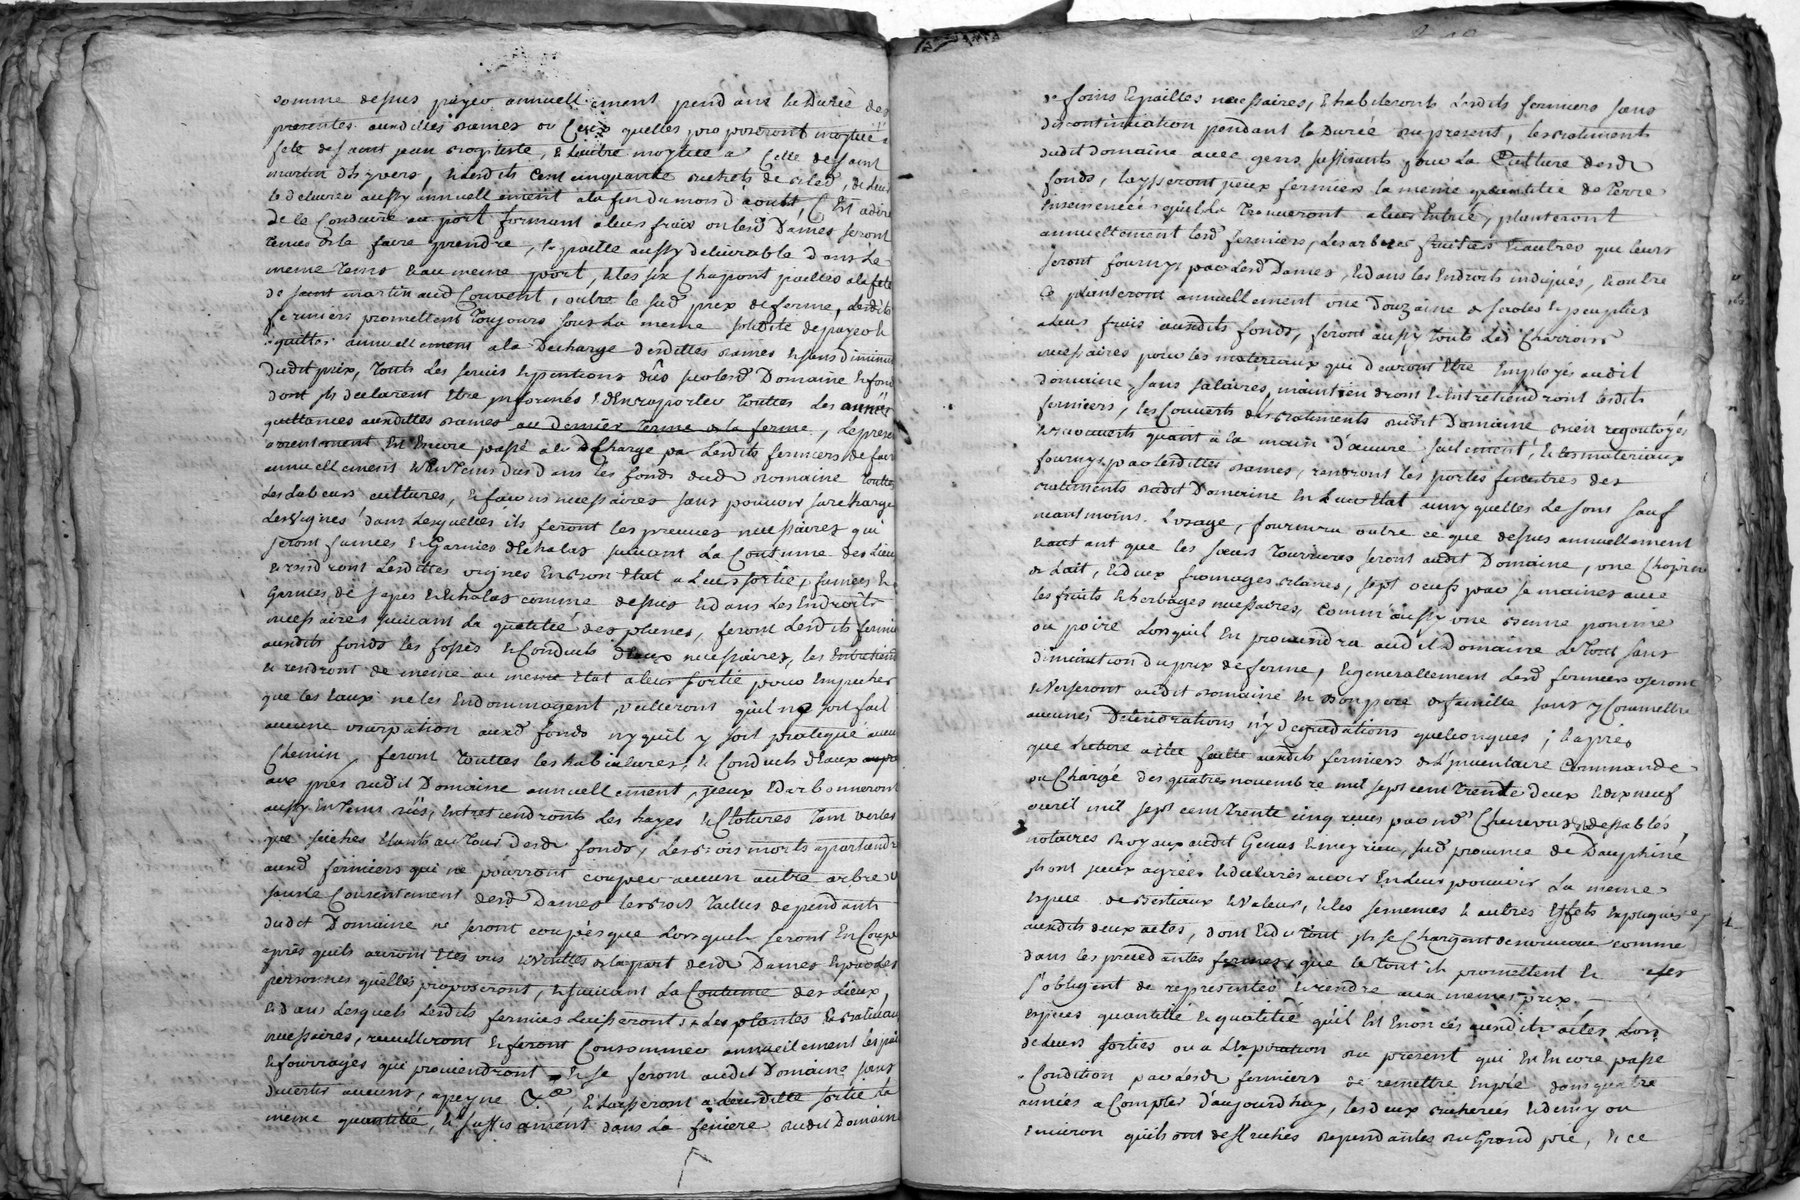 somme desus payer annuellement pendant la Durée des
presentes auxdittes dames ou Ceux quelles proposeront moytié a
fete de saint jean baptiste, & lautre moytié a Celle de saint
martin dhyvers, & lesdits cent cinquante bichets de bled, de leur
le delivrer aussy annuellement a la fin du mois d'aoust, C'est adire
de le Conduire au port formant a leurs frais ou lesd Dames seront
tenues de le faire prendre, la paille aussy delivrable dans le
meme tems & au meme port, & les six Chapons pailles a la fete
de saint martin aud Couvent, outre le sud prix de ferme, lesdits
fermiers promettent toujours sous la meme solidité de payer &
quitter annuellement a la Decharge desdittes dames & sans diminu
dudit prix, touts les servis & pentions dûs sur led Domaine & fond
dont ils declarent etre informés & d'en raporter touttes les années
quittances auxdittes dames au dernier terme de la ferme, le pres
asensement est encore passé a la Charge par lesdits fermiers de fair
annuellement & en tems dus dans les fonds dud domaine touttes
les labeurs cultures, & façons necessaires sans pouvoir surcharger
les vignes dans lesquelles ils feront les preuves necessaires qui
seront fumées & Garnies d'Echalas suivant la Coutume des lieux
& rendront lesdittes vignes en bon etat a leur sortie, fumées &
Garnies de seps & Echalas comme desus & dans les Endroits
necessaires suivant la quotité des planes, feront lesdits fermie
auxdits fonds les fossés & Conduits d'Eaux necessaires, les Entretiend
& rendront de meme au meme etat a leur sortie pour Empecher
que les Eaux ne les Endommagent, veilleront qu'il ne soit fait
aucune usurpation auxd fonds ny quil y soit pratiqué aucun
Chemin, feront touttes les habialures, & Conduits d'Eaux
aux prés dudit Domaine annuellement, yceux Edarbonneront
aussy en tems dûs, entretiendront les hayes & Clotures tant verbes
que seiches Etants autour desd fonds, les bois morts apartiendr
auxd fermiers qui ne pourront couper aucun autre arbre
sans le Consentement desd Dames les bois taillis dependants
dudit Domaine ne seront coupés que lorsquils seront en Coupe
après quils auront Etés vus & visittés de la part desd Dames & par les
personnes quelles proposeront, & suivant la Coutume des Lieux,
& dans lesquels lesdits fermiers laisseront les plantes & baliveaux
necessaires, recuilleront & feront Consommer annuellement les paill
& fourrages qui proviendront & se feront audit Domaine sans
divertir aucuns, a peyne &ca, & laisseront a leurditte sortie la
meme quantité, & suffisament dans la feniere dudit Domaine
de foins & pailles necessaires, & habiteront lesdits fermiers sans
discontinuation pendant la Durée du present, les batiments
dudit domaine avec gens suffisants pour la Culture desd
fonds, laysseront yeux fermiers la meme quantité de terre
Ensemencée quil la trouveront a leur Entrée, planteront
annuellement lesd fermiers, les arbres fruitiers & autres qui leurs
seront fournys par lesd Dames, & dans les Endroits indiqués, & outre
Ce planteront annuellement une Douzaine de saoles & peupliers
a leurs frais auxdits fonds, feront aussy touts les Charrois
necessaires pour les materiaux qui devront Etre Employés audit
domaine, sans salaires, maintiendront & entretiendront lesdits
fermiers, les Couverts des batiments dudit Domaine bien regoutoyés
& recouverts quant a la main d'œuvre seulement, & les materiaux
fournys par lesdittes dames, rendront les portes fenetres des
batiments dudit Domaine en leur etat ainsy quelles le sont sauf
neantmoins l'usage, fournira outre ce que desus annuellement
& autant que les sœurs tourrieres seront audit Domaine, une Chopine
de Lait, & deux fromages blancs, sept oeufs par semaines avec
les fruits & herbages necessaires, comm'aussy une benne pomme
ou poire lorsquil en proviendra audit Domaine le tout sans
diminution du prix de ferme, & generallement lesd fermiers useront
& verseront audit domaine en bon pere de famille sans y Commettre
aucunes Deteriorations n'y degradations quelconques; & après
que lecture a Eté faitte auxdits fermiers de l'inventaire Commande
ou Chargé des quatres novembre mil sept cent trente deux & dixneuf
avril mil sept cent trente cinq reçus par mes Chenevas & dessablés,
notaires Royaux audit Genas & meyrieu, sud province de Dauphiné
ils ont yceux agréés & declarés avoir en leur pouvoir la meme
Espece de Bestiaux & valeur, & les semences & autres Effets Expliqués
auxdits deux actes, dont & du tout ils se Chargent de nouveau comme
dans les precedantes fermes, que le tout ils promettent &
s'obligent de representer & rendre aux memes prix
Especes quantité & qualitté qu'il est Enoncés auxdits actes Lors
de leurs sorties ou a l'Expiration du present qui est Encore passé
a Condition par lesd fermiers de remettre en pré dans quatre
années a Compter d'aujourdhuy, les deux bicherées & demy ou
Environ quils ont defrichés dependantes du Grand pré, & ce